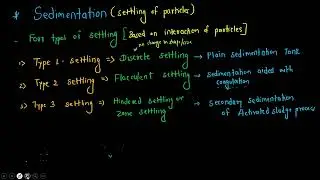 * Sedimentation (settling of particles)
- Four types of settling [Based on interaction of particles]
no change in shape/size
1) Type 1 - settling => Discrete settling → Plain sedimentation Tank
2) Type 2 settling => Flocculent settling → sedimentation aided with coagulation
3) Type 3 settling => Hindered settling or zone settling → Secondary sedimentation of Activated sludge process